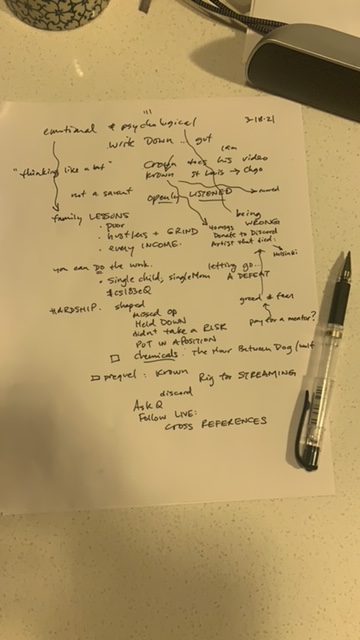 3-18-21
emotional & psychological
Write Down... gut
"thinking like a bot"
Crown does his video
Krown St Louis → Chgo
not a savant
openly LISTENED
moved
family LESSONS
being WRONG
• Poor
• hustlers + GRIND
Donate to Discord
• every INCOME.
Artist that tied:
Helsinki
you can Do the work.
letting go...
• Single child, single Mom
A DEFEAT
HARDSHIP. shaped
greed & fear
missed op
Held DOWN
pay for a mentor?
didn't take a RISK
PUT IN A POSITION
chemicals: The Hour Between Dog/wolf
prequel: Krown Rig for STREAMING
discord
Ask Q
Follow LIVE:
CROSS REFERENCES